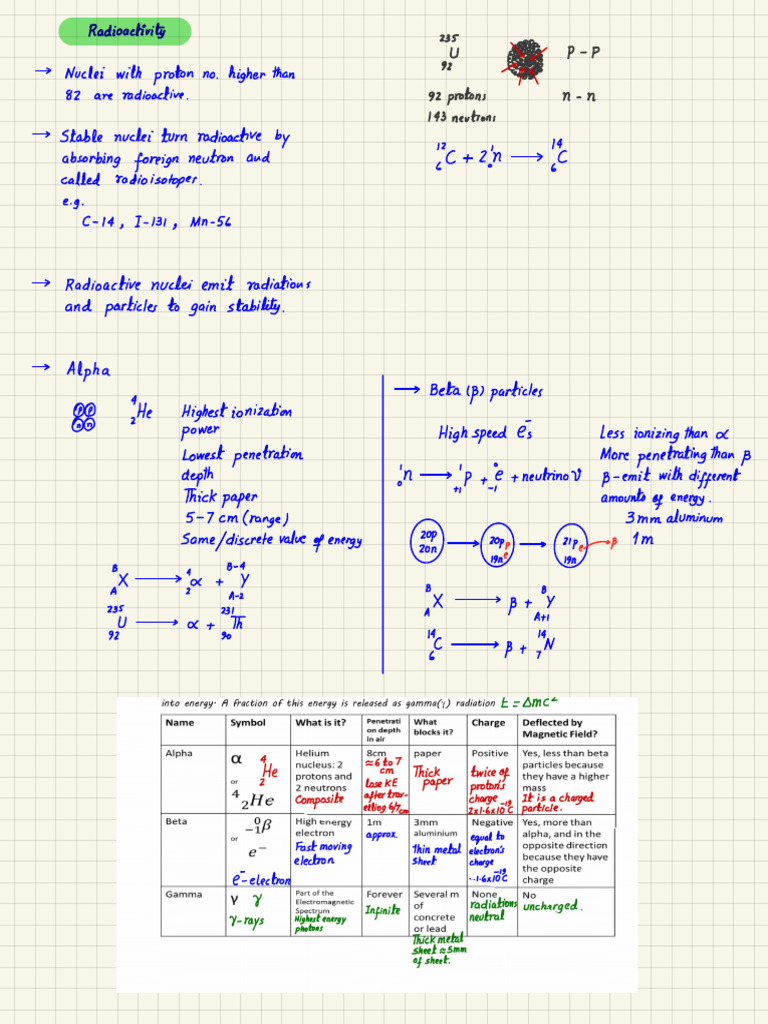 Radioactivity
→ Nuclei with proton no. higher than
82 are radioactive.
→ Stable nuclei turn radioactive by
absorbing foreign neutron and
called radioisotopes.
e.g.
C-14, I-131, Mn-56
→ Radioactive nuclei emit radiations
and particles to gain stability.
235
U
92
P - P
92 protons
n - n
143 neutrons
¹²₆C + 2¹₀n ⟶ ¹⁴₆C
→ Alpha
p p
n n
⁴₂He
Highest ionization
power
Lowest penetration
depth
Thick paper
5-7 cm (range)
Same/discrete value of energy
ᴮ_A X ⟶ ⁴₂α + ᴮ⁻⁴_A-2 Y
²³⁵₉₂U ⟶ α + ²³¹₉₀Th
→ Beta (β) particles
High speed e⁻s
Less ionizing than α
More penetrating than β
β-emit with different
amounts of energy.
3mm aluminum
1m
¹₀n ⟶ ¹₊₁p + ⁰₋₁e + neutrino ν
20p
20n
⟶
20p p
19n e
⟶
21p e → β
19n
ᴮ_A X ⟶ β + ᴮ_A+1 Y
¹⁴₆C ⟶ β + ¹⁴₇N
into energy. A fraction of this energy is released as gamma(γ) radiation E = Δmc²
Name Symbol What is it? Penetrati on depth in air What blocks it? Charge Deflected by Magnetic Field?
Alpha
α
or
⁴₂He
⁴₂He
Helium
nucleus: 2
protons and
2 neutrons
Composite
8cm
≈6 to 7
cm
lose KE
after trav-
elling 6/7cm
paper
Thick
paper
Positive
twice of
proton's
charge
2×1.6×10⁻¹⁹C
Yes, less than beta
particles because
they have a higher
mass
It is a charged
particle.
Beta
⁰₋₁β
or
e⁻
e⁻-electron
High energy
electron
Fast moving
electron
1m
approx.
3mm
aluminium
thin metal
sheet
Negative
equal to
electron's
charge
-1.6×10⁻¹⁹C
Yes, more than
alpha, and in the
opposite direction
because they have
the opposite
charge
Gamma
γ γ
γ-rays
Part of the
Electromagnetic
Spectrum
Highest energy
photons
Forever
Infinite
Several m
of
concrete
or lead
Thick metal
sheet ≈ 5mm
of sheet.
None
radiations
neutral
No
uncharged.